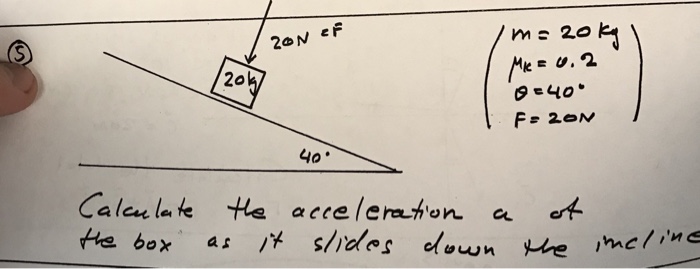 5
20N = F
20kg
40°
m = 20 kg
μk = 0.2
θ = 40°
F = 20N
Calculate the acceleration a of
the box as it slides down the incline